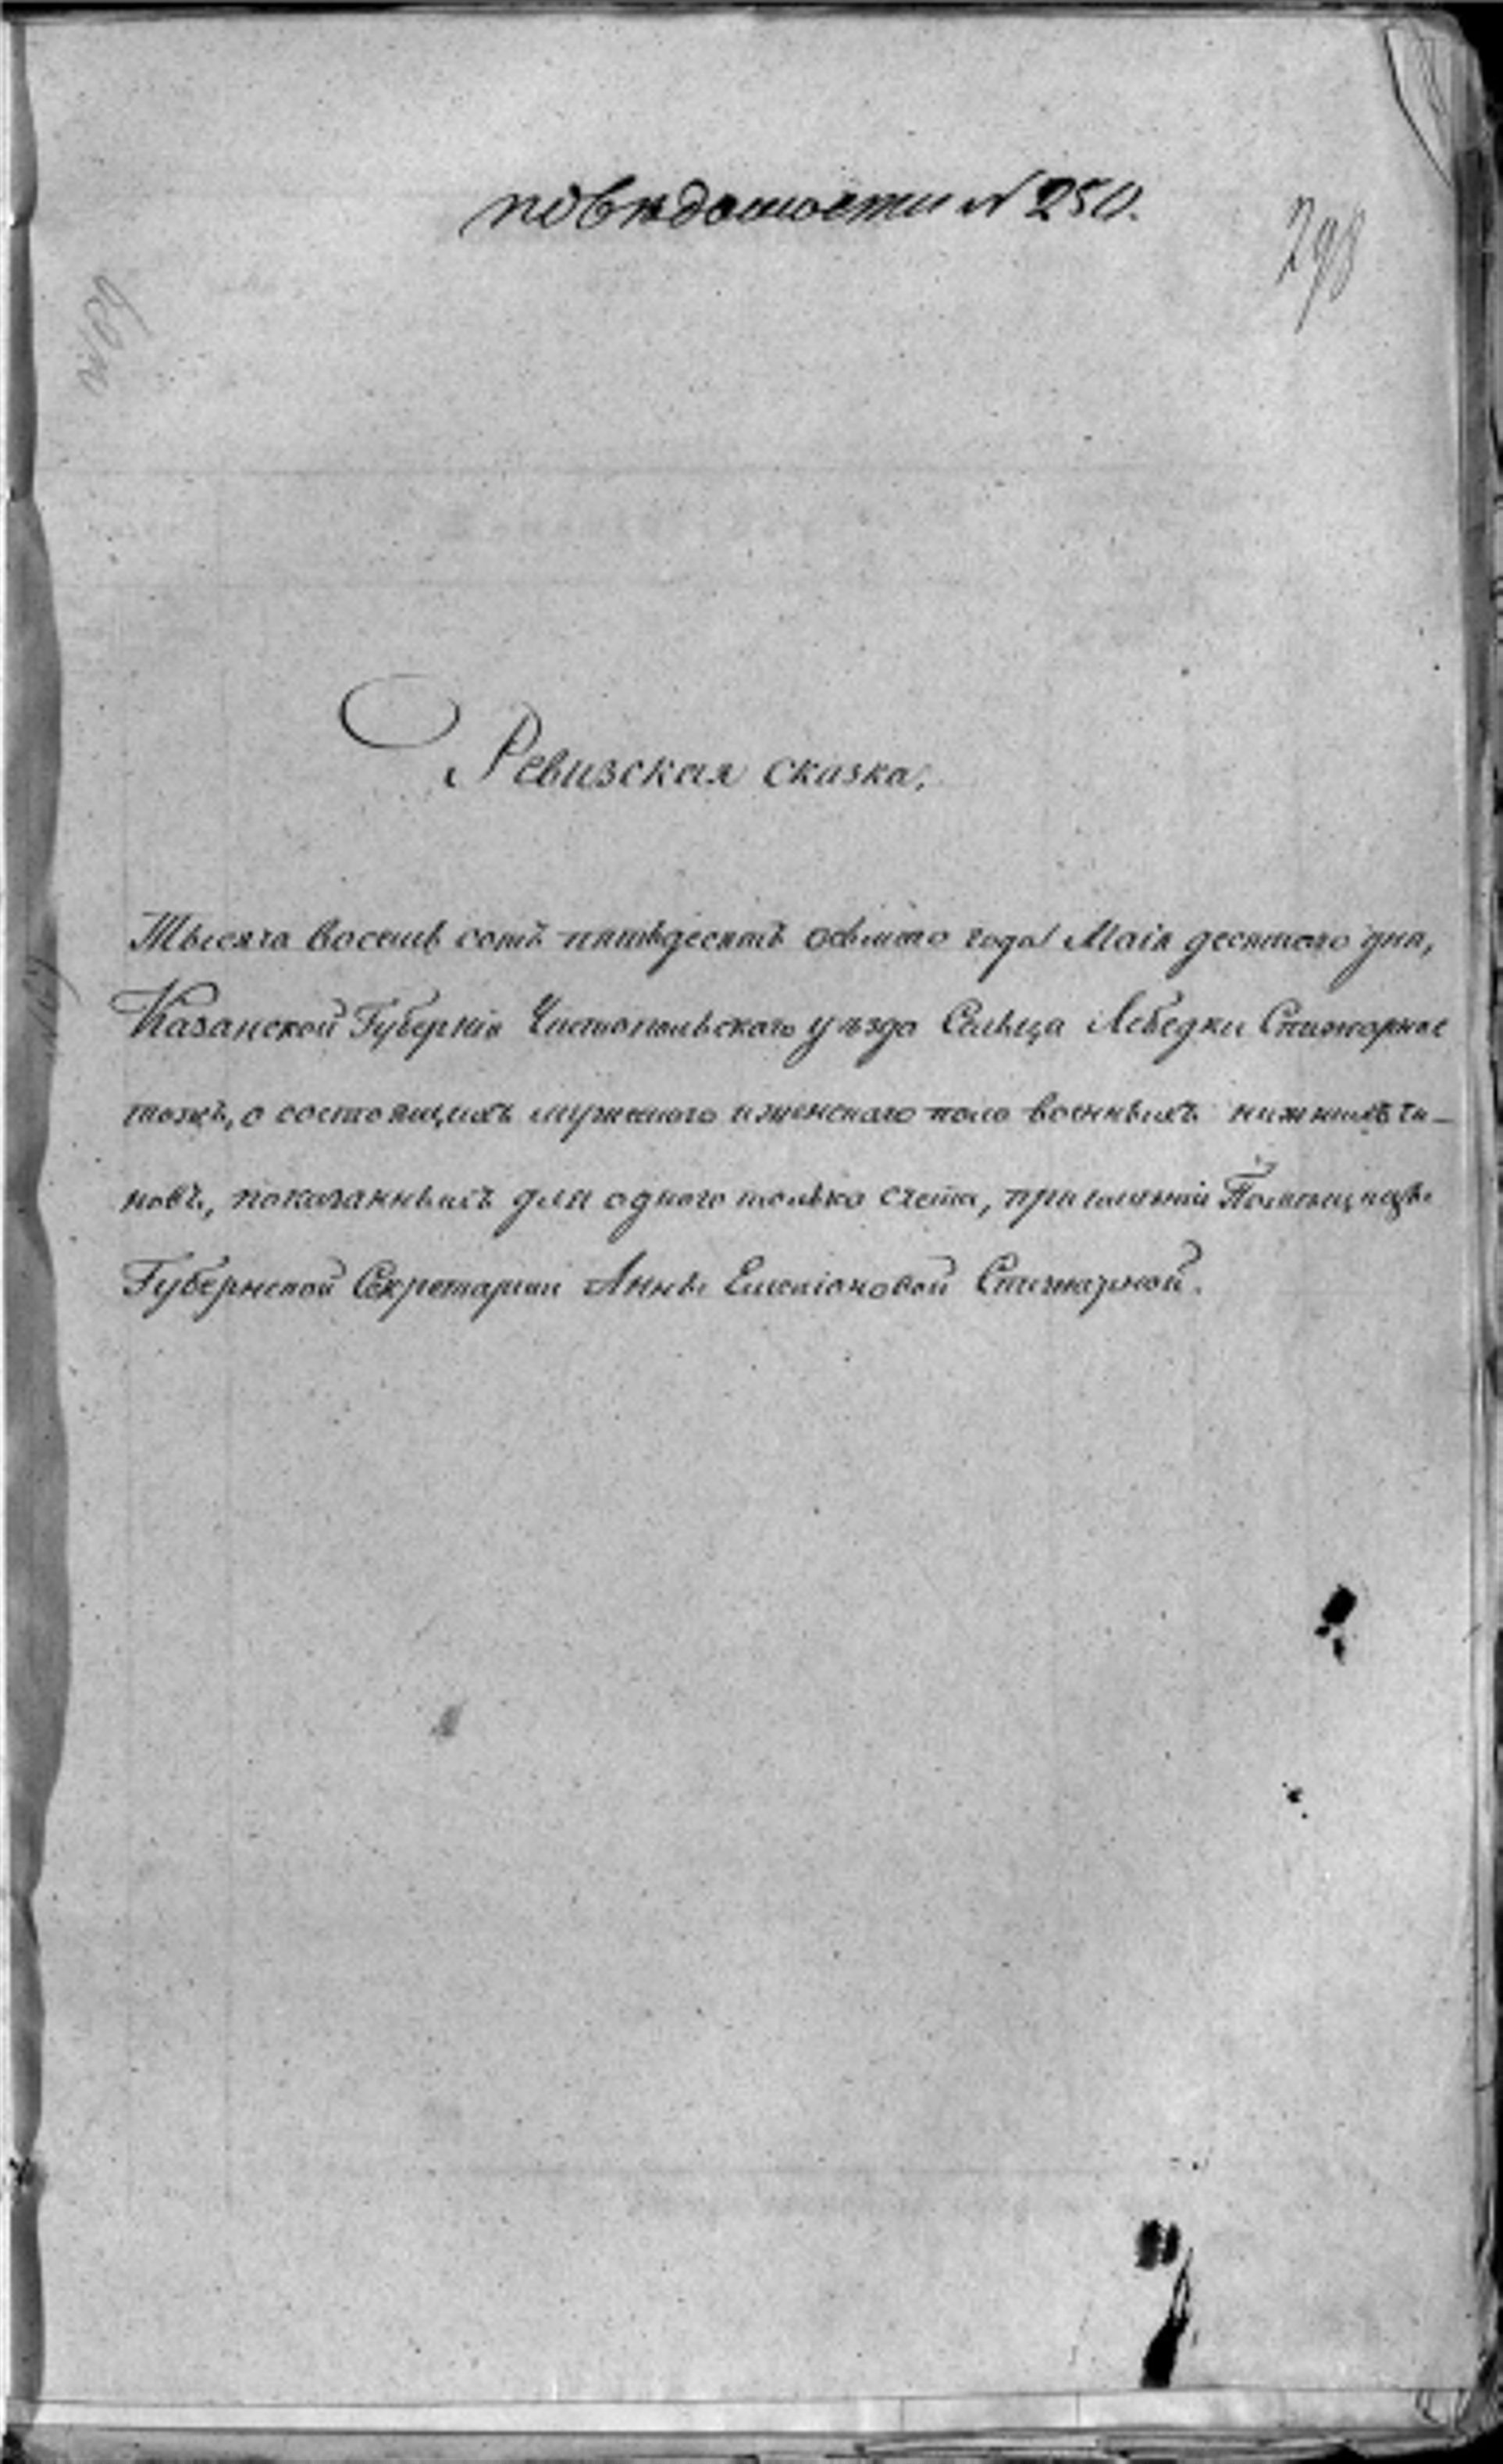 по вѣдомости № 250.
298
Ревизская сказка,
Тысяча восемь сотъ пятьдесятъ осьмаго года Маія десятаго дня,
Казанской Губерніи Чистопольскаго уѣзда Сельца Лебедки
тожъ, о состоящихъ мужескаго и женскаго пола военныхъ нижнихъ чи-
новъ, показанныхъ для одного только счета, при имѣніи Помѣщицы
Губернской Секретарши Анны